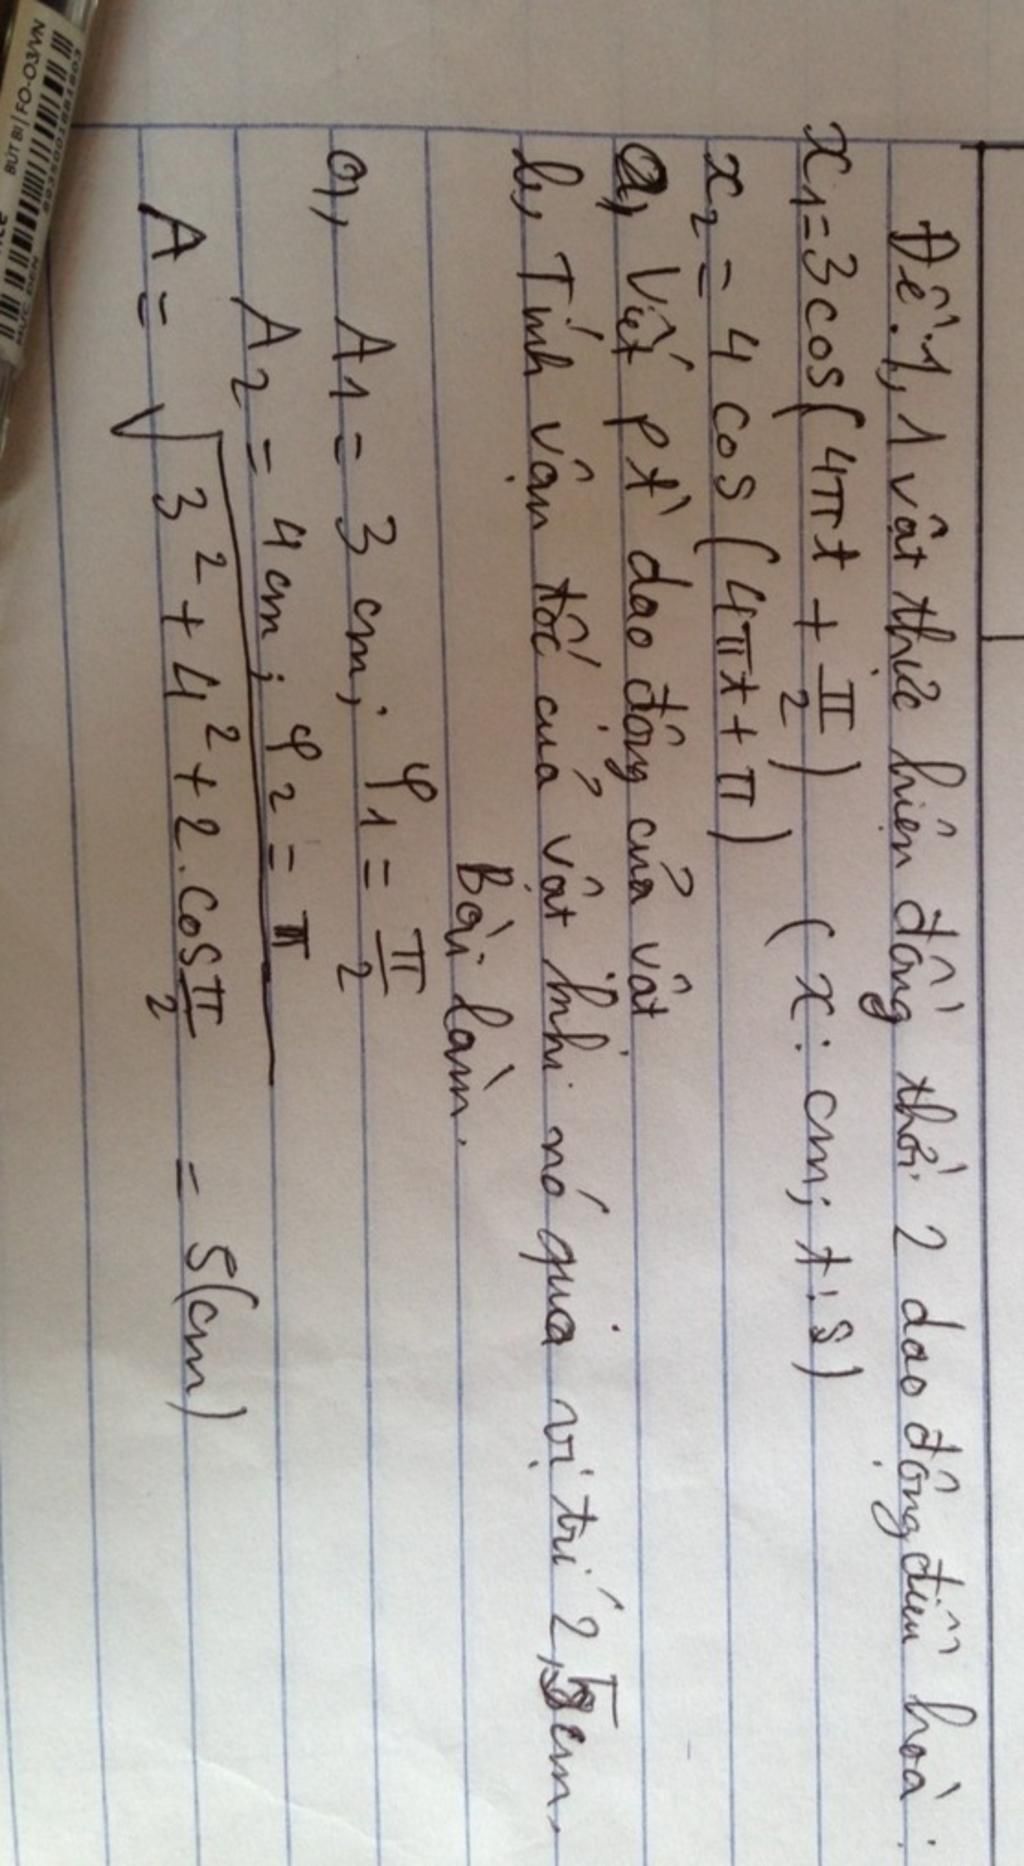 Đề: 1, 1 vật thực hiện đồng thời 2 dao động điều hoà:
x₁ = 3cos(4πt + π/2) (x: cm; t: s)
x₂ = 4 cos (4πt + π)
a, Viết pt dao động của vật
b, Tính vận tốc của vật khi nó qua vị trí 2,5cm.
Bài làm.
a, A₁ = 3 cm; φ₁ = π/2
A₂ = 4cm; φ₂ = π
A = √(3² + 4² + 2.cos π/2) = 5(cm)
BÚT BI | FO-03/VN